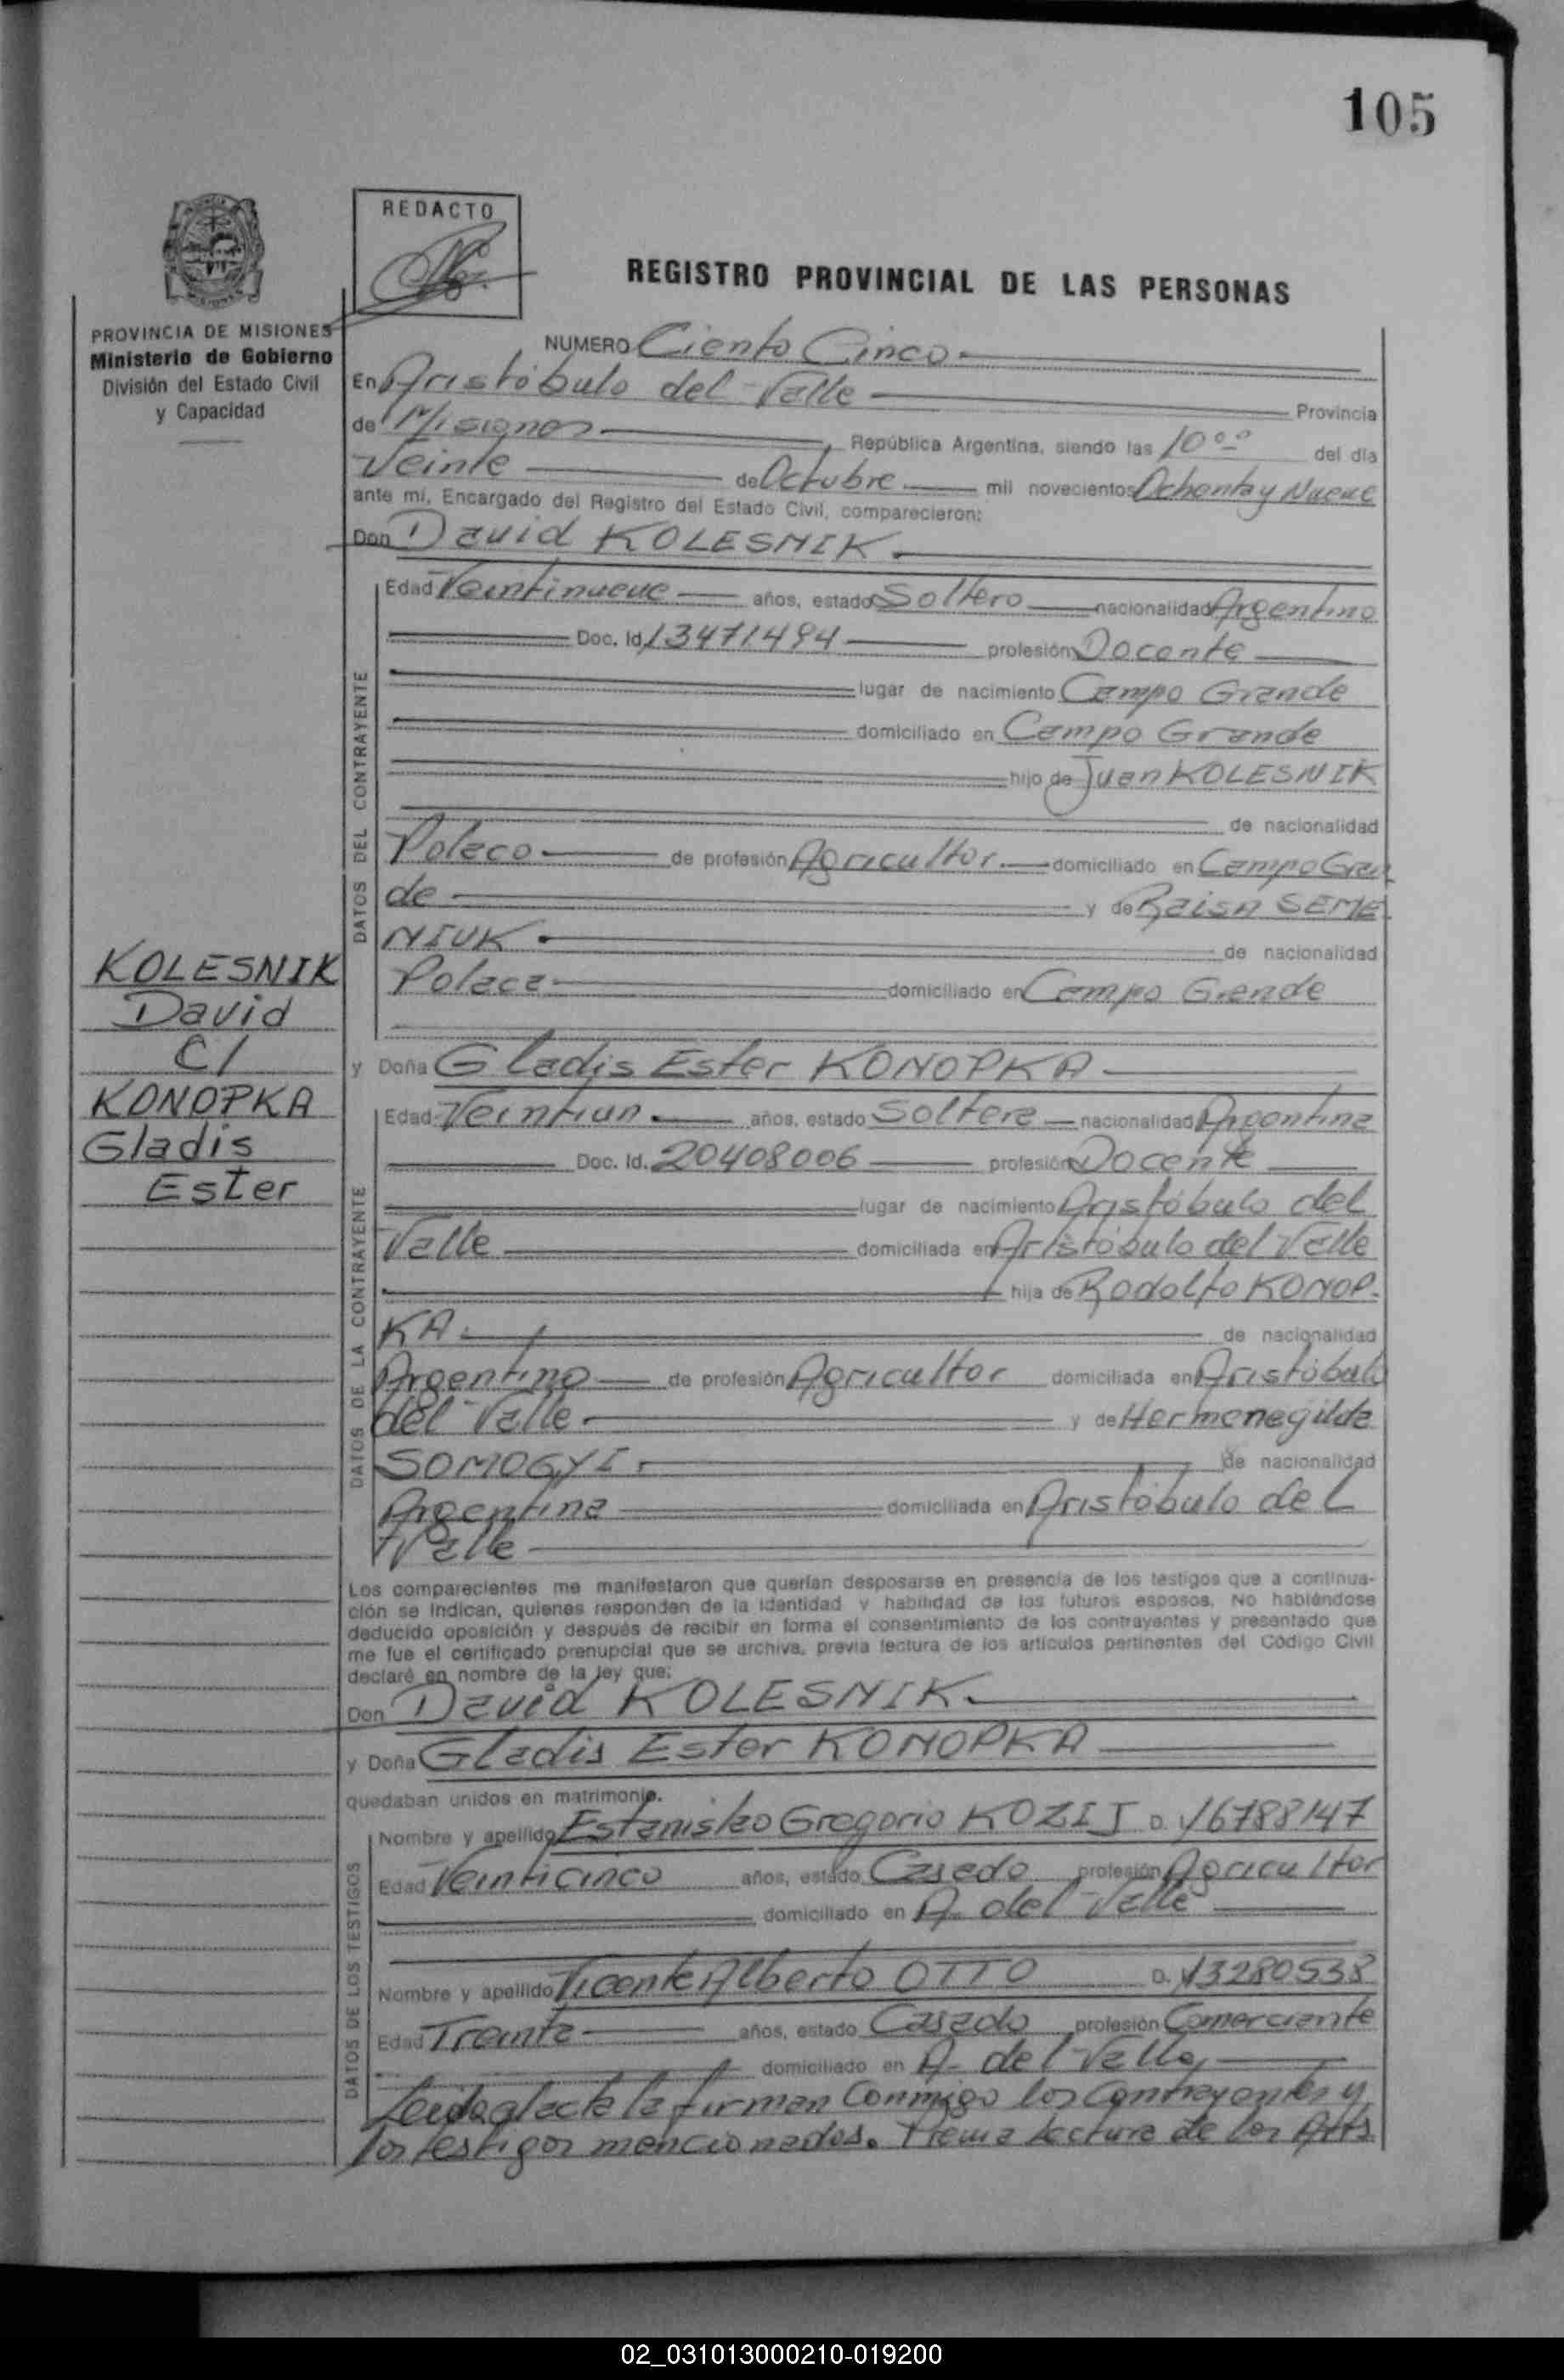 105
REDACTO
REGISTRO PROVINCIAL DE LAS PERSONAS
PROVINCIA DE MISIONES
Ministerio de Gobierno
División del Estado Civil
y Capacidad
KOLESNIK
David
C/
KONOPKA
Gladis
Ester
NUMERO Ciento Cinco.
En Aristóbulo del Valle Provincia
de Misiones, República Argentina, siendo las 10°° del día
Veinte de Octubre mil novecientos Ochenta y Nueve
ante mí, Encargado del Registro del Estado Civil, comparecieron:
Don David KOLESNIK.
DATOS DEL CONTRAYENTE
Edad Veintinueve años, estado Soltero nacionalidad Argentino
Doc. Id. 13471494 profesión Docente
lugar de nacimiento Campo Grande
domiciliado en Campo Grande
hijo de Juan KOLESNIK
de nacionalidad
Polaco de profesión Agricultor. domiciliado en Campo Gran
de y de Raisa SEME
NIUK. de nacionalidad
Polaca domiciliado en Campo Grande
y Doña Gladis Ester KONOPKA
DATOS DE LA CONTRAYENTE
Edad Veintiun. años, estado Soltera nacionalidad Argentina
Doc. Id. 20408006 profesión Docente
lugar de nacimiento Aristóbulo del
Valle domiciliada en Aristóbulo del Valle
hija de Rodolfo KONOP-
KA. de nacionalidad
Argentino de profesión Agricultor domiciliada en Aristóbulo
del Valle. y de Hermenegilda
SOMOGYI. de nacionalidad
Argentina domiciliada en Aristóbulo del
Valle
Los comparecientes me manifestaron que querían desposarse en presencia de los testigos que a continua-
ción se indican, quienes responden de la identidad y habilidad de los futuros esposos. No habiéndose
deducido oposición y después de recibir en forma el consentimiento de los contrayentes y presentado que
me fue el certificado prenupcial que se archiva, previa lectura de los artículos pertinentes del Código Civil
declaré en nombre de la ley que:
Don David KOLESNIK.
y Doña Gladis Ester KONOPKA
quedaban unidos en matrimonio.
DATOS DE LOS TESTIGOS
Nombre y apellido Estanislao Gregorio KOZIJ D. 16788147
Edad Veinticinco años, estado Casado profesión Agricultor
domiciliado en A. del Valle
Nombre y apellido Vicente Alberto OTTO D. 13280538
Edad Treinta años, estado Casado profesión Comerciante
domiciliado en A. del Valle,
Leida el acta la firman Conmigo los Contrayentes y
los testigos mencionados. Previa Lectura de los Arts.
02_031013000210-019200